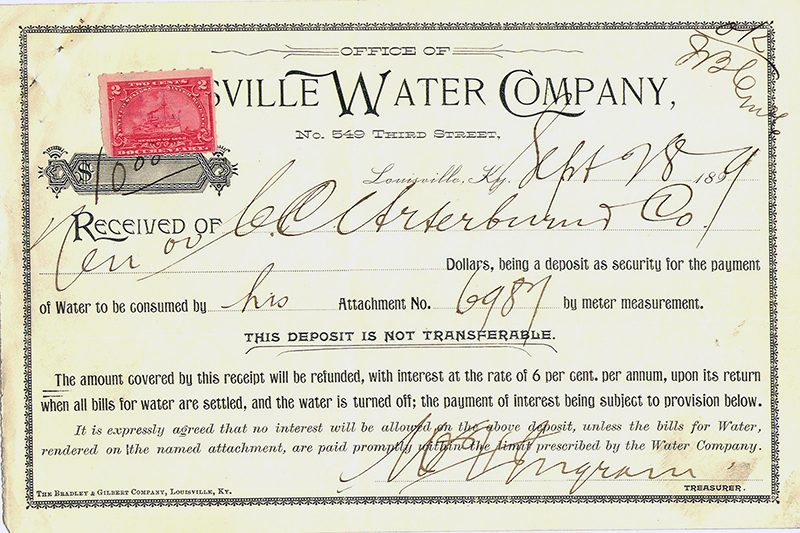 OFFICE OF
SVILLE WATER COMPANY,
No. 549 THIRD STREET,
TWO CENTS
2 2
$10.00
Louisville, Ky. Sept 28 1899
RECEIVED OF C. C. Arterburn Co.
Ten
Dollars, being a deposit as security for the payment
of Water to be consumed by his Attachment No. 6987 by meter measurement.
THIS DEPOSIT IS NOT TRANSFERABLE.
The amount covered by this receipt will be refunded, with interest at the rate of 6 per cent. per annum, upon its return
when all bills for water are settled, and the water is turned off; the payment of interest being subject to provision below.
It is expressly agreed that no interest will be allowed on the above deposit, unless the bills for Water,
rendered on the named attachment, are paid promptly within the limit prescribed by the Water Company.
Ingram
THE BRADLEY & GILBERT COMPANY, LOUISVILLE, KY.
TREASURER.